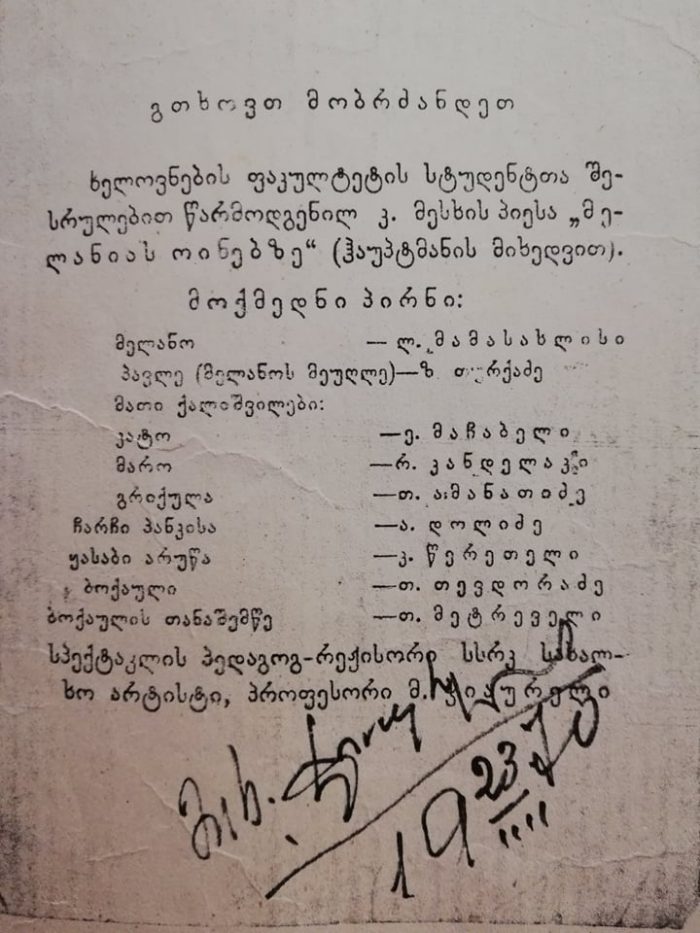 გთხოვთ მობრძანდეთ
ხელოვნების ფაკულტეტის სტუდენტთა შე-
სრულებით წარმოდგენილ კ. მესხის პიესა „მე-
ლანიას ოინებზე“ (ჰაუპტმანის მიხედვით).
მოქმედნი პირნი:
მელანო — ლ. მამასახლისი
პავლე (მელანოს მეუღლე)—ზ
მათი ქალიშვილები:
კატო —ე. მაჩაბელი
მარო —რ. კანდელაკი
გრიქულა —თ. ამანათიძე
ჩარჩი პანკისა —ა. დოლიძე
ყასაბი არუწა —კ. წერეთელი
ბოქაული —თ. თევდორაძე
ბოქაულის თანაშემწე —თ. მეტრეველი
სპექტაკლის პედაგოგ-რეჟისორი სსრკ სახალ-
ხო არტისტი, პროფესორი მ. ჭიაურელი
23
19 70